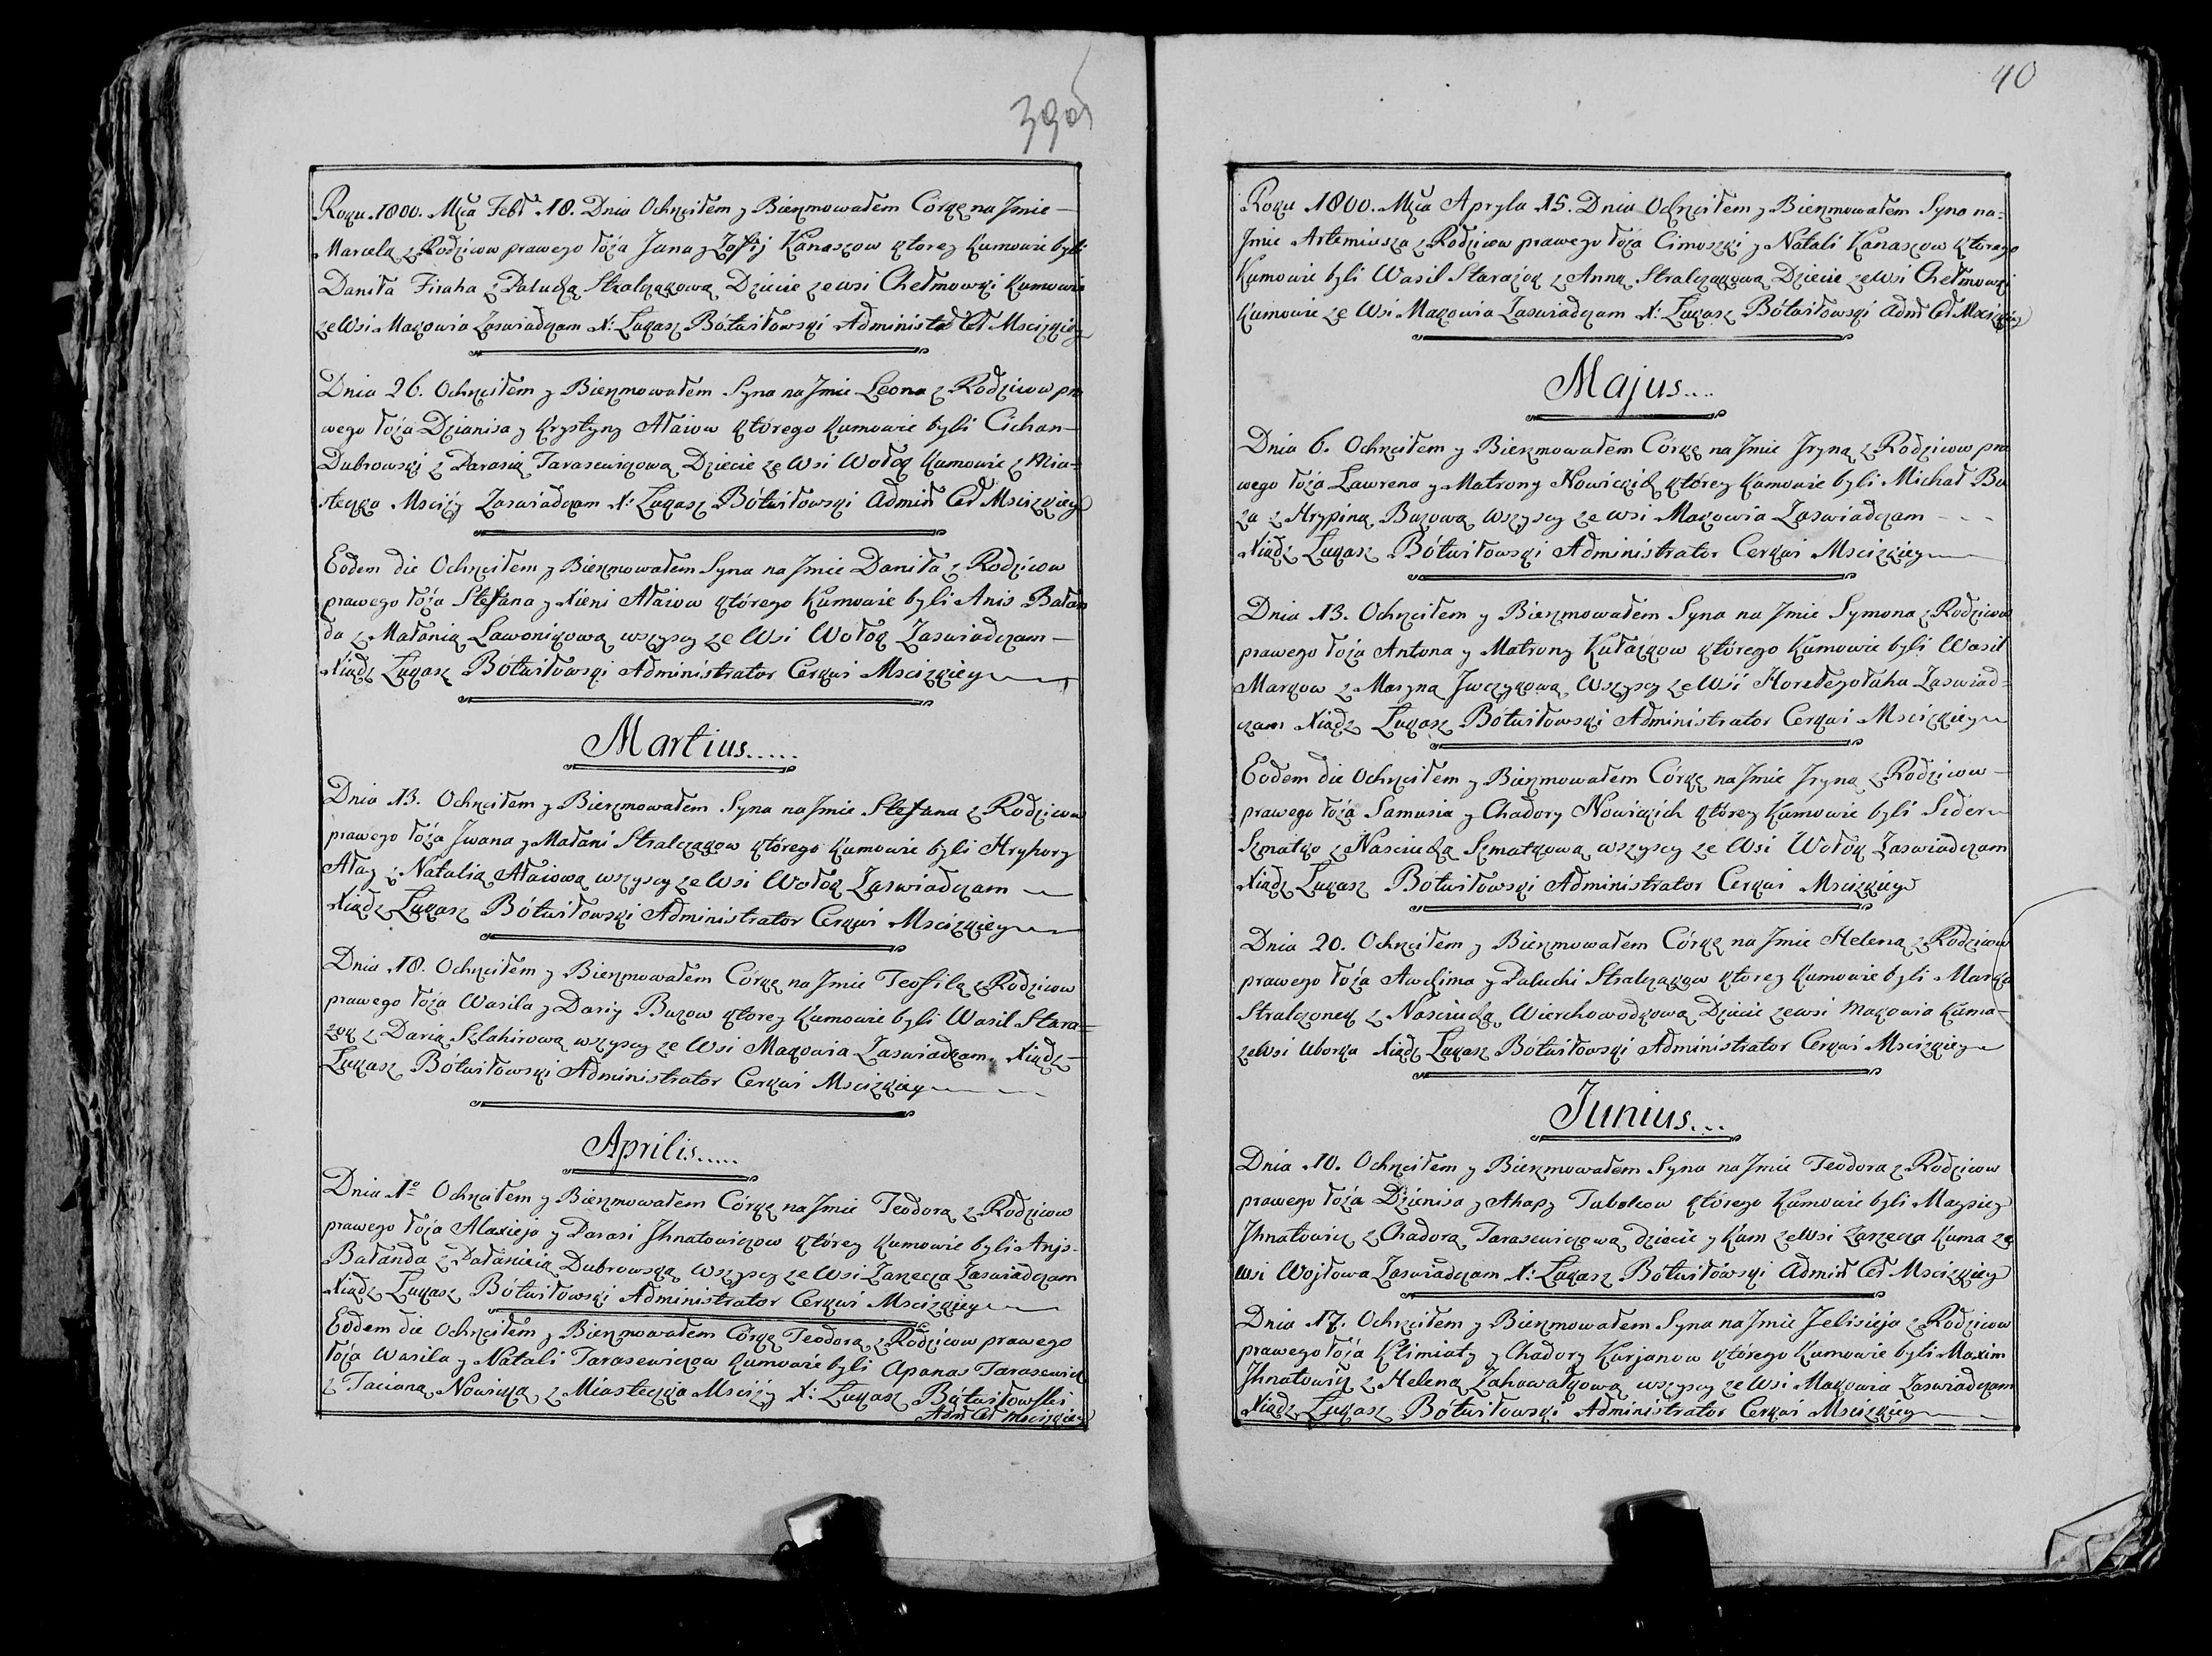 39об
Roku 1800. Mca Febr 18. Dnia Ochrzciłem y Bierzmowałem Córkę na Jmie
Marcelą z Rodzicow prawego łoża Jana y Zofij Kanaszow ktorey Kumowie byli
Daniła Firaha z Paluchą Stralczakową Dziecie ze wsi Chełmowki Kumowie
ze Wsi Makowia Zaswiadczam X: Łukasz Bótwiłowski Administ Cer Mscizkiey
Dnia 26. Ochrzciłem y Bierzmowałem Syna na Jmie Leona z Rodzicow pra
wego łoża Dzianisa y Krystyny Ałaiow którego Kumowie byli Cichan
Dubrowski z Parasią Tarasewiczową Dziecie ze Wsi Wołok Kumowie z Mia-
steczka Mscizy Zaswiadczam X: Łukasz Bótwiłowski Admin Cer Mscizkiey
Eodem die Ochrzciłem y Bierzmowałem Syna na Jmie Daniła z Rodzicow
prawego łoża Stefana y Xieni Ałaiow którego Kumowie byli Anis Bałan
da z Małanią Lawonikową wszyscy ze Wsi Wołok Zaswiadczam
Xiądz Łukasz Bótwiłowski Administrator Cerkwi Mscizkiey
Martius.....
Dnia 13. Ochrzciłem y Bierzmowałem Syna na Jmie Stefana z Rodzicow
prawego łoża Jwana y Małani Stralczakow którego Kumowie byli Hryhory
Ałay z Natalią Ałaiową wszyscy ze Wsi Wołok Zaswiadczam
Xiądz Łukasz Bótwiłowski Administrator Cerkwi Mscizkiey
Dnia 18. Ochrzciłem y Bierzmowałem Córkę na Jmie Teofilą z Rodzicow
prawego łoża Wasila y Dariy Buzow ktorey Kumowie byli Wasil Stara-
żok z Darią Szlahirową wszyscy ze Wsi Makowia Zaswiadczam Xiądz
Łukasz Bótwiłowski Administrator Cerkwi Mscizkiey
Aprilis.....
Dnia 1º Ochrzciłem y Bierzmowałem Córkę na Jmie Teodorą z Rodzicow
prawego łoża Alaxieja y Parasi Jhnatowiczow którey Kumowie byli Anjs
Bałanda z Pałanieią Dubrowską wszyscy ze Wsi Zarzecza Zaswiadczam
Xiądz Łukasz Bótwiłowski Administrator Cerkwi Mscizkiey
Eodem die Ochrzciłem y Bierzmowałem Córkę Teodorą z Rodzicow prawego
łoża Wasila y Natali Tarasewiczow Kumowie byli Apanas Tarasewicz
z Tacianą Nowicką z Miasteczka Mscizy X: Łukasz Bótwiłowski
Adm Cer Mscizkiey
40
Roku 1800. Mca Apryla 15. Dnia Ochrzciłem y Bierzmowałem Syna na-
Jmie Artemiusza z Rodzicow prawego łoża Cimoszki y Natali Kanaszow ktorego
Kumowie byli Wasil Starażok z Anną Stralczakową Dziecie ze Wsi Chełmowki
Kumowie ze Wsi Makowia Zaswiadczam X: Łukasz Bótwiłowski Adm Cer Mscizkiey
Majus....
Dnia 6. Ochrzciłem y Bierzmowałem Córkę na Jmie Jryną z Rodzicow pra
wego łoża Lawrena y Matrony Nowickich którey Kumowie byli Michał Bu
za z Hrypiną Buzową wszyscy ze wsi Makowia Zaswiadczam - - -
Xiądz Łukasz Bótwiłowski Administrator Cerkwi Mscizkiey
Dnia 13. Ochrzciłem y Bierzmowałem Syna na Jmie Symona z Rodzicow
prawego łoża Antona y Matrony Kułażkow którego Kumowie byli Wasil
Markow z Maryną Jwczykową Wszyscy ze Wsi Horełegołuha Zaswiad-
czam Xiądz Łukasz Bótwiłowski Administrator Cerkwi Mscizkiey
Eodem die Ochrzciłem y Bierzmowałem Córkę na Jmie Jryną z Rodzicow
prawego łoża Samusia y Chadory Nowickich którey Kumowie byli Sider
Szmatko z Nasciuchą Szmatkową wszyscy ze Wsi Wołok Zaswiadczam
Xiądz Łukasz Botwiłowski Administrator Cerkwi Mscizkiey
Dnia 20. Ochrzciłem y Bierzmowałem Córkę na Jmie Heleną z Rodzicow
prawego łoża Awdima y Paluchi Stralczakow ktorey Kumowie byli Marka
Stralczonek z Nasciuchą Wierchowodkową Dziecie ze wsi Makowia Kuma-
ze Wsi Uborka Xiądz Łukasz Bótwiłowski Administrator Cerkwi Mscizkiey
Junius...
Dnia 10. Ochrzciłem y Bierzmowałem Syna na Jmie Teodora z Rodzicow
prawego łoża Dzienisa y Ahapy Tubolcow którego Kumowie byli Maysiey
Jhnatowicz z Chadorą Tarasewiczową dziecie y Kum ze Wsi Zarzecza Kuma ze
wsi Wojłowa Zaswiadczam X: Łukasz Bótwiłowski Admin Cer Mscizkiey
Dnia 17. Ochrzciłem y Bierzmowałem Syna na Jmie Jelisieja z Rodzicow
prawego łoża Klimiaty y Chadory Kurjanow którego Kumowie byli Maxim
Jhnatowicz z Heleną Zahawałkową wszyscy ze Wsi Makowia Zaswiadczam
Xiądz Łukasz Bótwiłowski Administrator Cerkwi Mscizkiey